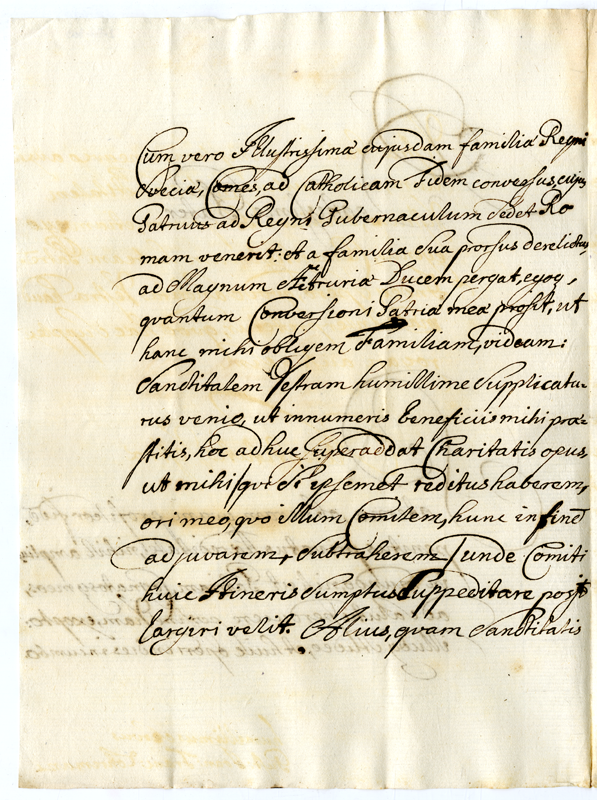 Cum vero Illustrissima cujusdam familia Regni
Svecia, Comes, ad Catholicam Fidem conversus, cujus
Patruus ad Regni Gubernaculum sedet Ro
mam venerit: et a familia sua prorsus derelictus,
ad Magnum Hetruria Ducem pergat, egoq,
quantum Conversioni Patria mea prosit, ut
hanc mihi obligem Familiam, videam:
Sanctitatem Vestram humillime Supplicatu-
rus venio, ut innumeris beneficiis mihi præ-
stitis, hoc adhuc Superaddat Charitatis opus,
ut mihi / qui Si Ipsemet reditus haberem,
ori meo, quo illum Comitem, hunc in finē
adjuvarem, Subtraherem / unde Comiti
huic Itineris Sumptus Suppeditare possē
largiri velit. Alius, quam Sanctitatis